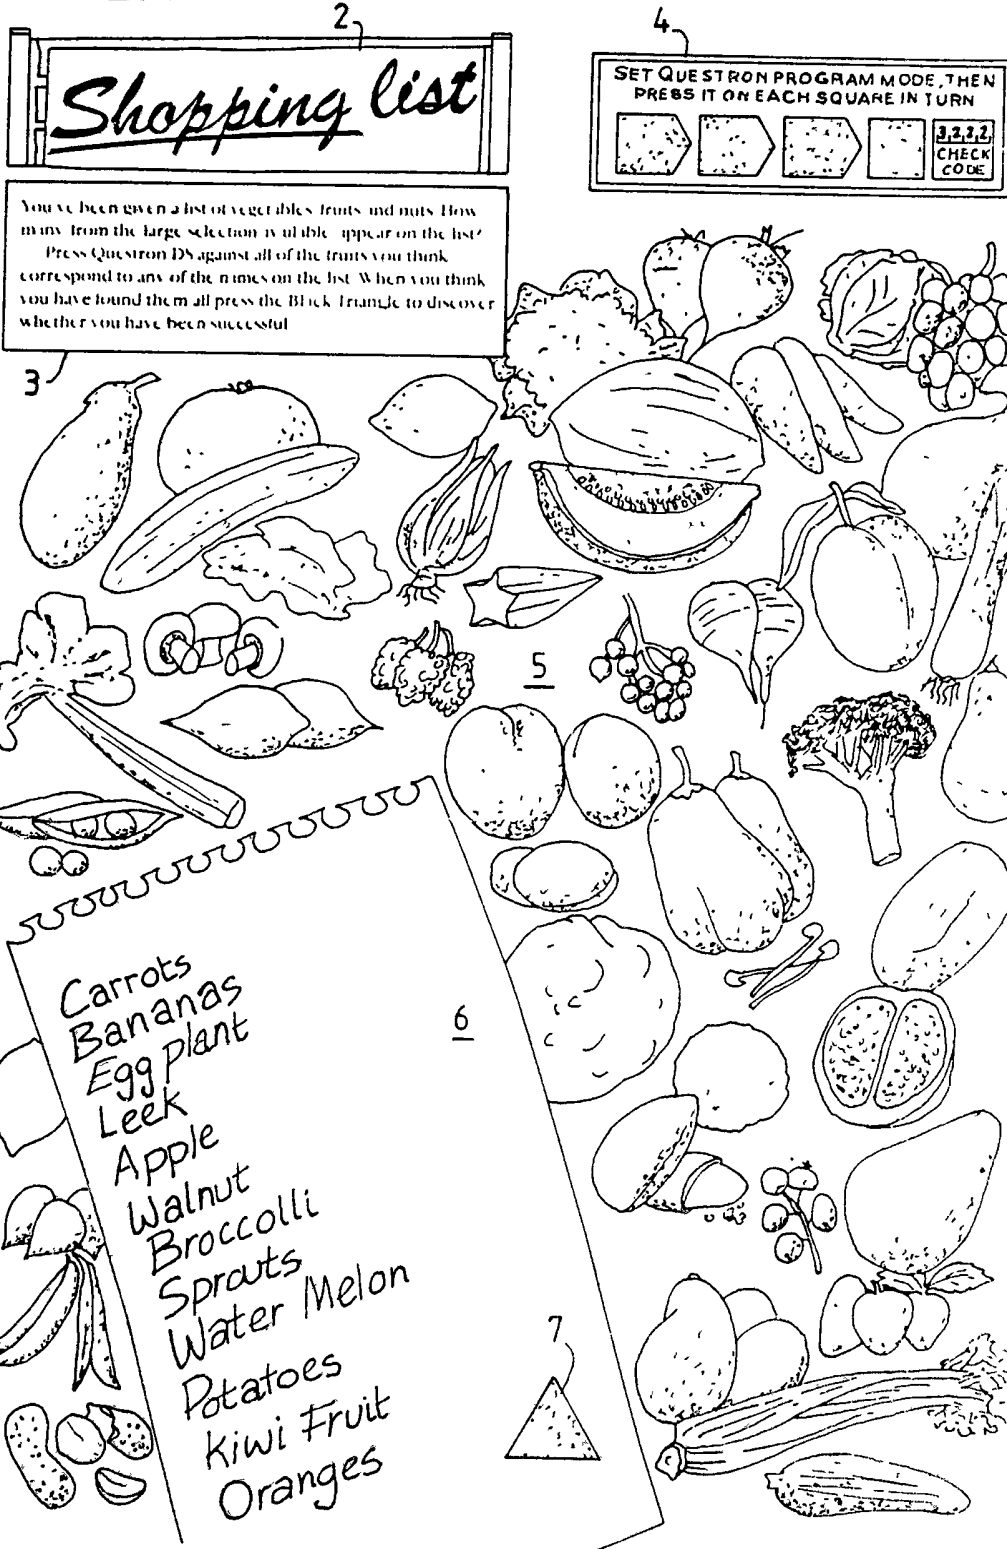 2
4
Shopping list
SET QUESTRON PROGRAM MODE, THEN
PRESS IT ON EACH SQUARE IN TURN
3,2,2,2,
CHECK
CODE
You've been given a list of vegetables fruits and nuts How
many from the large selection available appear on the list?
Press Questron DS against all of the fruits you think
correspond to any of the names on the list When you think
you have found them all press the Black Triangle to discover
whether you have been successful
3
5
6
Carrots
Bananas
Egg plant
Leek
Apple
Walnut
Broccolli
Sprouts
Water Melon
Potatoes
Kiwi Fruit
Oranges
7